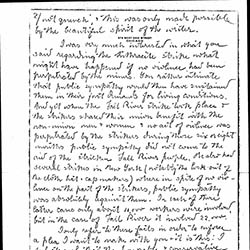 by the beautiful spirit of the writer.
I was very much interested in what you
said regarding the Anthracite Strike what
might have happened if no violence had been
perpetrated by the mines. You rather intimate
that public sympathy would then have sustained
them in their just demands for living conditions
And yet when the Fall River strike took place &
the strikers shared this minus benefit with the
common men & women & no act of violence was
perpetrated by the strikers during those six
months public sympathy did not come to the
aid of the stricken Fall River people. We also had
several strikes in New York (notably the lock out of
the cloth hat & cap makers) where in spite of no vio-
lence on the part of the strikers, public sympathy
was absolutely against them. In each of these
latter cases only about workers were involved
but in the case of Fall River it involved 22,000
I only refer to these facts in order to
a plea I want to make with you & it is this: I